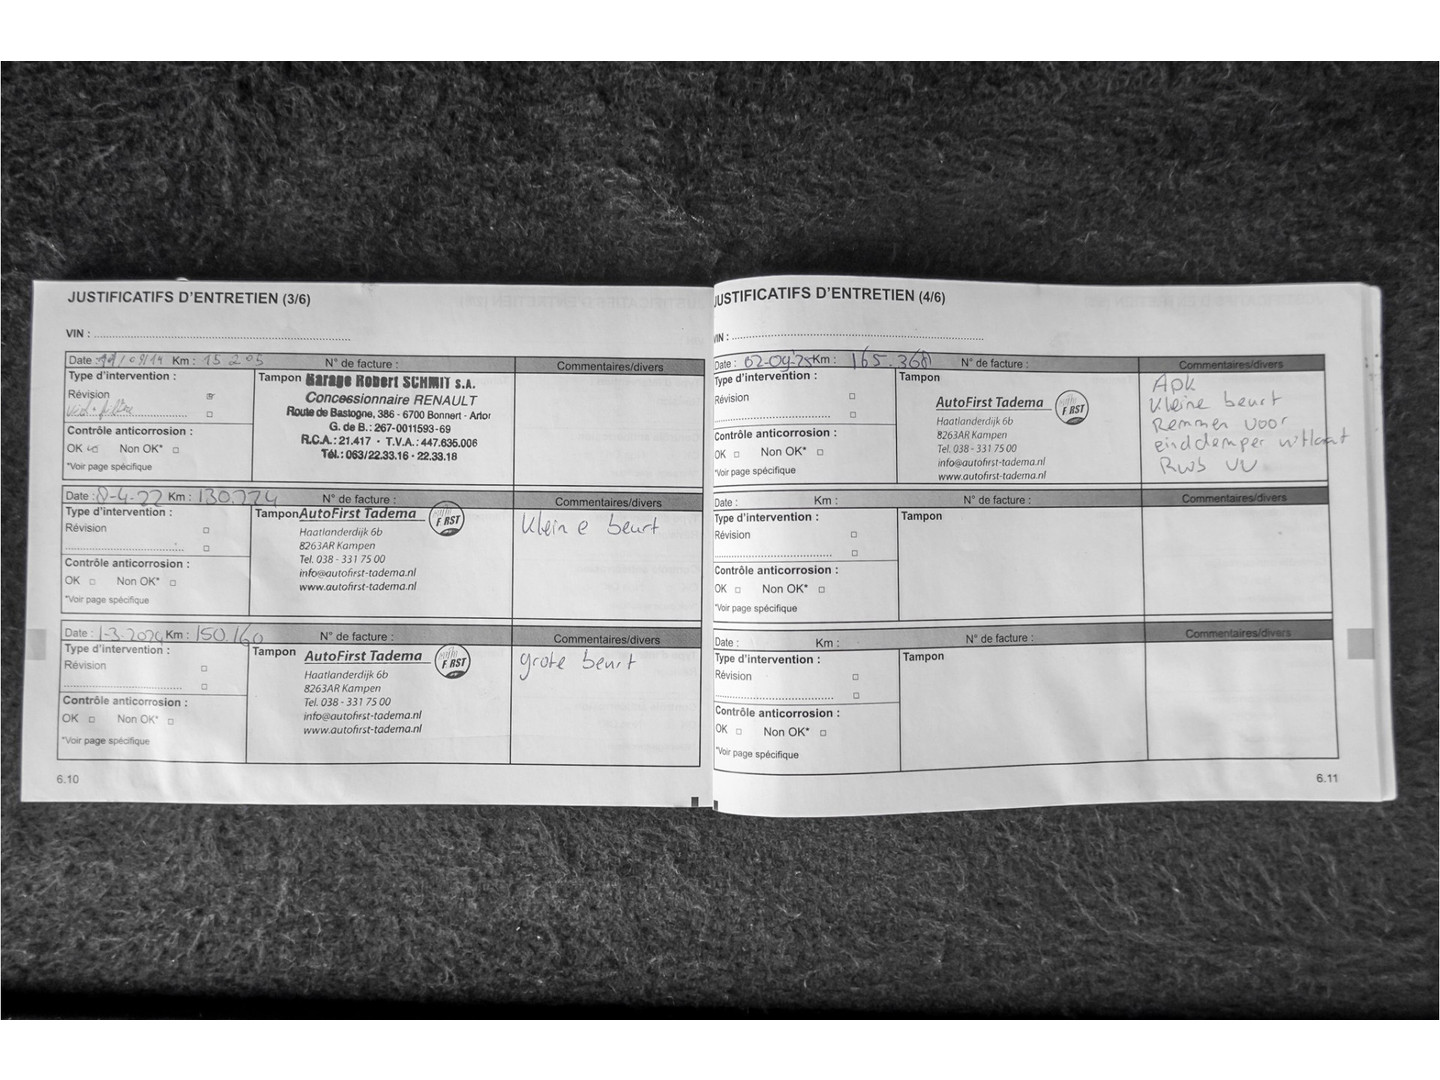 JUSTIFICATIFS D'ENTRETIEN (3/6)
VIN :
Date : 19/08/14 Km : 15.205 N° de facture :
Commentaires/divers
Type d'intervention :
Révision
Contrôle anticorrosion :
OK Non OK*
*Voir page spécifique
Tampon
Garage Robert SCHMIT S.A.
Concessionnaire RENAULT
Route de Bastogne, 386 - 6700 Bonnert - Arlor
G. de B.: 267-0011593-69
R.C.A.: 21.417 - T.V.A.: 447.635.006
Tél.: 063/22.33.16 - 22.33.18
Date : 8-4-22 Km : 130.774 N° de facture :
Commentaires/divers
Type d'intervention :
Révision
Contrôle anticorrosion :
OK Non OK*
*Voir page spécifique
Tampon
AutoFirst Tadema
FIRST
Haatlanderdijk 6b
8263AR Kampen
Tel. 038 - 331 75 00
info@autofirst-tadema.nl
www.autofirst-tadema.nl
Kleine beurt
Date : 1-3-2024 Km : 150.160 N° de facture :
Commentaires/divers
Type d'intervention :
Révision
Contrôle anticorrosion :
OK Non OK*
*Voir page spécifique
Tampon
AutoFirst Tadema
FIRST
Haatlanderdijk 6b
8263AR Kampen
Tel. 038 - 331 75 00
info@autofirst-tadema.nl
www.autofirst-tadema.nl
grote beurt
6.10
JUSTIFICATIFS D'ENTRETIEN (4/6)
VIN :
Date : 02-09-25 Km : 165.368 N° de facture :
Commentaires/divers
Type d'intervention :
Révision
Contrôle anticorrosion :
OK Non OK*
*Voir page spécifique
Tampon
AutoFirst Tadema
FIRST
Haatlanderdijk 6b
8263AR Kampen
Tel. 038 - 331 75 00
info@autofirst-tadema.nl
www.autofirst-tadema.nl
Apk
Kleine beurt
Remmen voor
einddemper uitlaat
Rwb VV
Date : Km : N° de facture :
Commentaires/divers
Type d'intervention :
Révision
Contrôle anticorrosion :
OK Non OK*
*Voir page spécifique
Tampon
Date : Km : N° de facture :
Commentaires/divers
Type d'intervention :
Révision
Contrôle anticorrosion :
OK Non OK*
*Voir page spécifique
Tampon
6.11